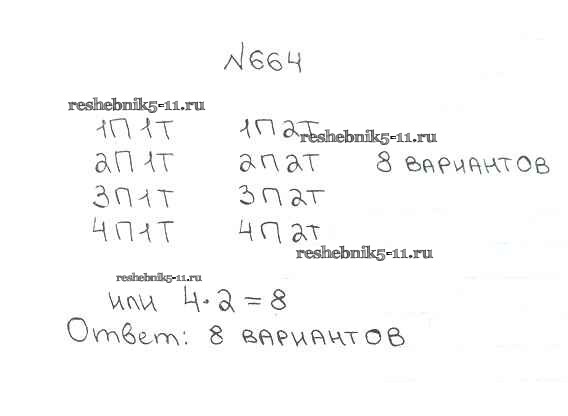 N664
reshebnik5-11.ru
1П1Т 1П2Т
reshebnik5-11.ru
2П1Т 2П2Т 8 ВАРИАНТОВ
3П1Т 3П2Т
4П1Т 4П2Т
reshebnik5-11.ru
reshebnik5-11.ru
или 4·2=8
Ответ: 8 ВАРИАНТОВ